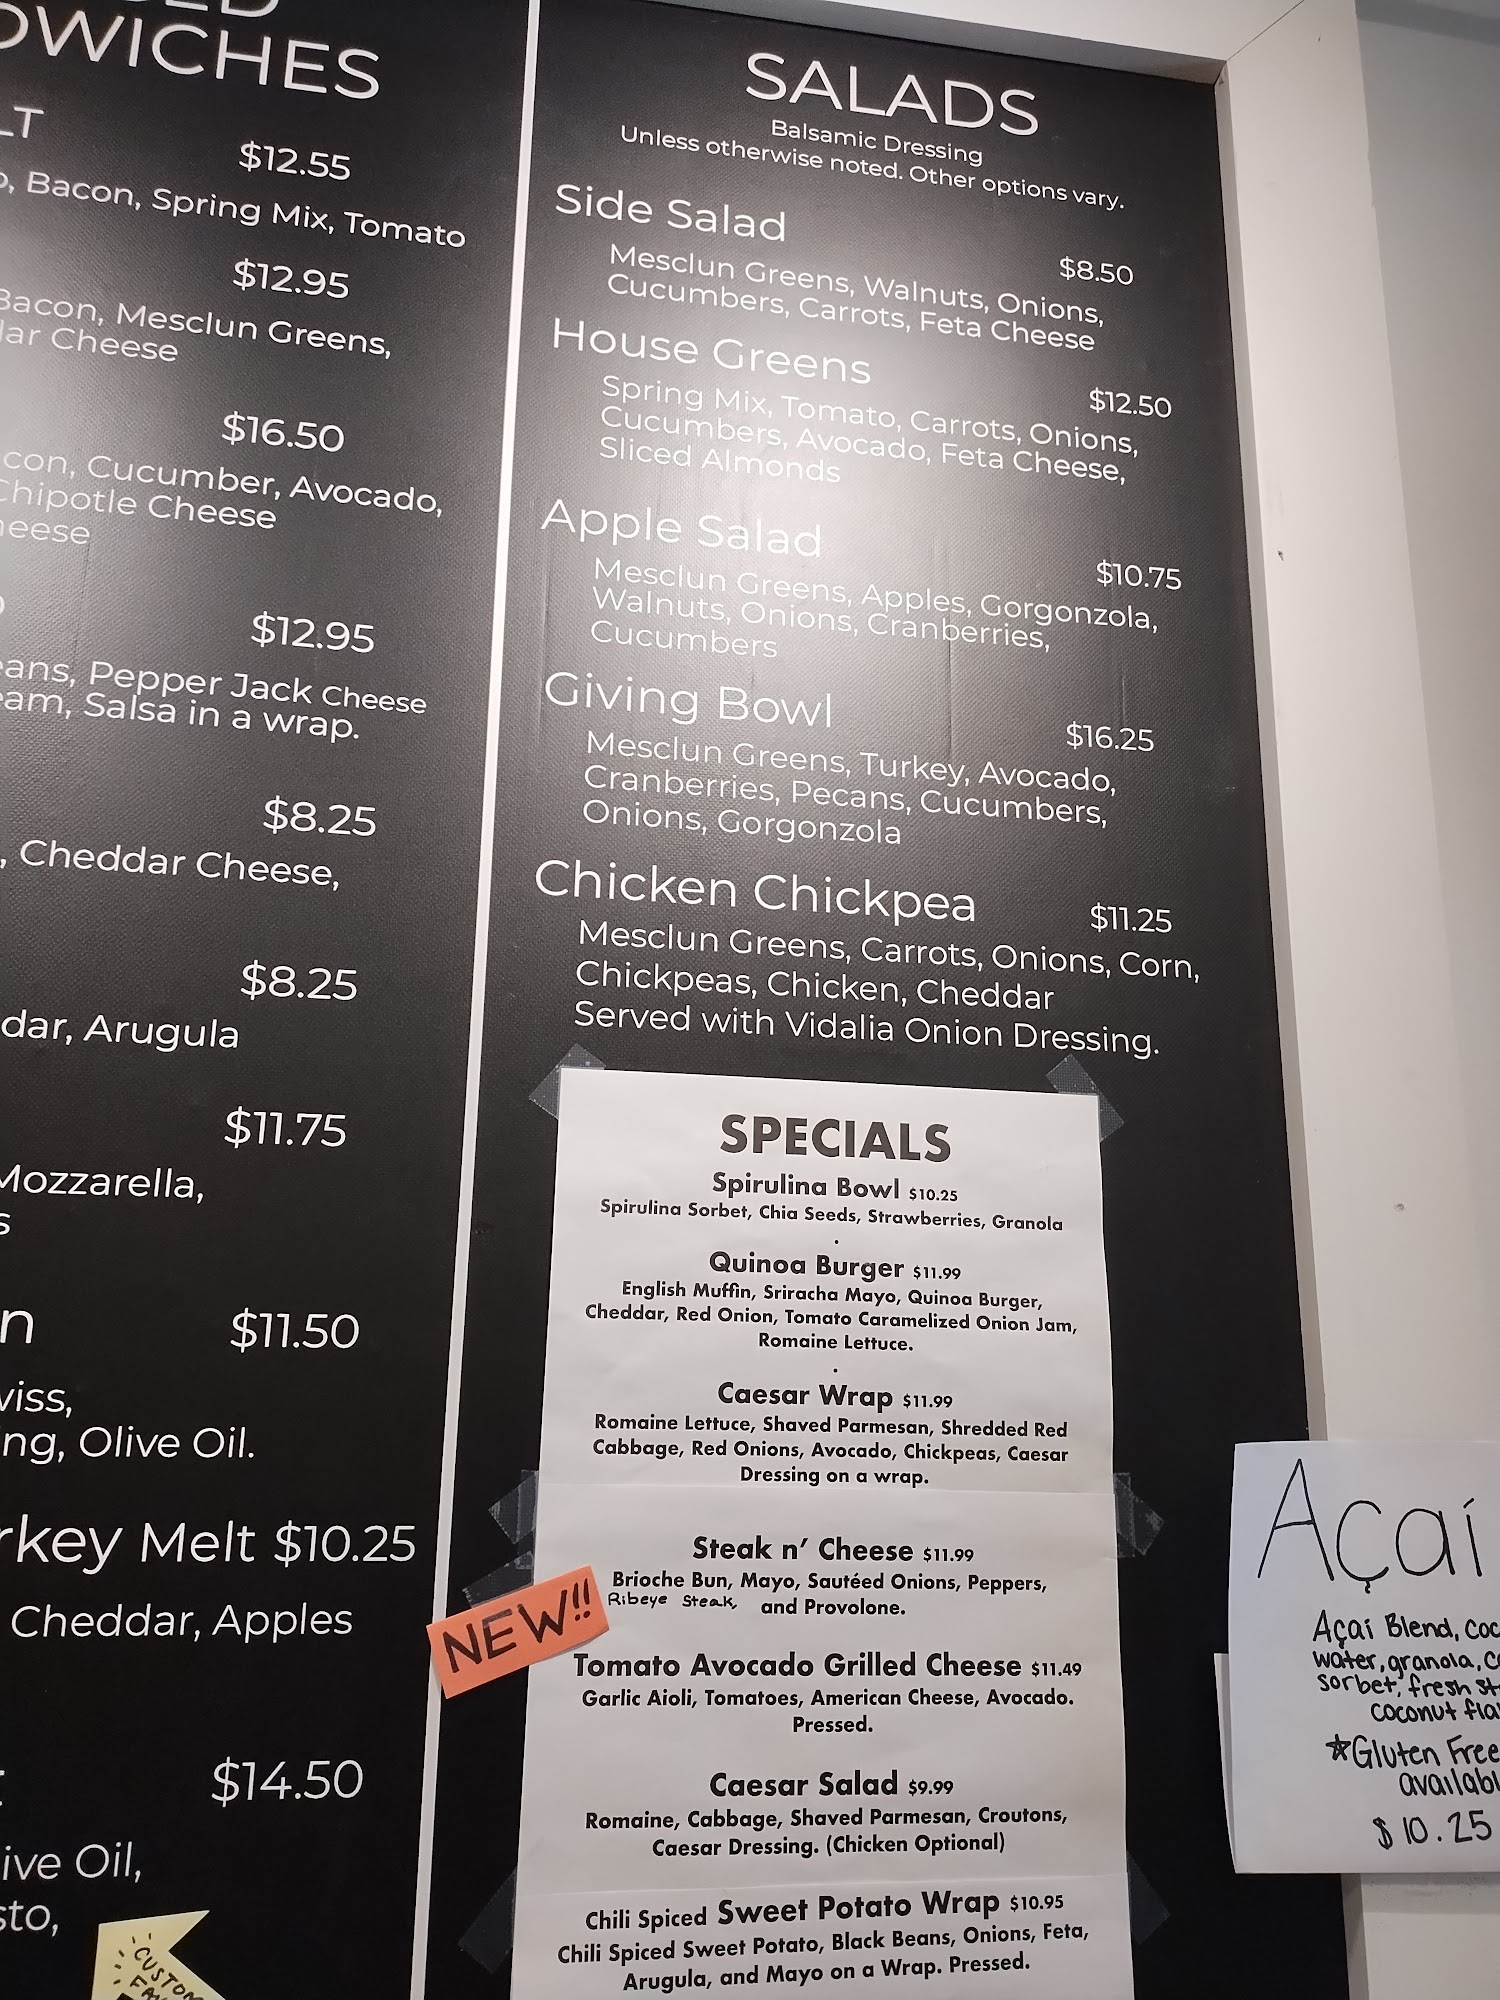 DWICHES
LT
$12.55
, Bacon, Spring Mix, Tomato
$12.95
Bacon, Mesclun Greens,
Cheese
$16.50
Cucumber, Avocado,
Chipotle Cheese
$12.95
Pepper Jack Cheese
Salsa in a wrap.
$8.25
, Cheddar Cheese,
$8.25
Arugula
$11.75
Mozzarella,
s
n $11.50
Olive Oil.
Melt $10.25
Cheddar, Apples
$14.50
Oil,
SALADS
Balsamic Dressing
Unless otherwise noted. Other options vary.
Side Salad
$8.50
Mesclun Greens, Walnuts, Onions,
Cucumbers, Carrots, Feta Cheese
House Greens
$12.50
Spring Mix, Tomato, Carrots, Onions,
Cucumbers, Avocado, Feta Cheese,
Sliced Almonds
Apple Salad
$10.75
Mesclun Greens, Apples, Gorgonzola,
Walnuts, Onions, Cranberries,
Cucumbers
Giving Bowl
$16.25
Mesclun Greens, Turkey, Avocado,
Cranberries, Pecans, Cucumbers,
Onions, Gorgonzola
Chicken Chickpea $11.25
Mesclun Greens, Carrots, Onions, Corn,
Chickpeas, Chicken, Cheddar
Served with Vidalia Onion Dressing.
SPECIALS
Spirulina Bowl $10.25
Spirulina Sorbet, Chia Seeds, Strawberries, Granola
.
Quinoa Burger $11.99
English Muffin, Sriracha Mayo, Quinoa Burger,
Cheddar, Red Onion, Tomato Caramelized Onion Jam,
Romaine Lettuce.
.
Caesar Wrap $11.99
Romaine Lettuce, Shaved Parmesan, Shredded Red
Cabbage, Red Onions, Avocado, Chickpeas, Caesar
Dressing on a wrap.
Steak n' Cheese $11.99
Brioche Bun, Mayo, Sautéed Onions, Peppers,
Ribeye Steak, and Provolone.
NEW!!
Tomato Avocado Grilled Cheese $11.49
Garlic Aioli, Tomatoes, American Cheese, Avocado.
Pressed.
Caesar Salad $9.99
Romaine, Cabbage, Shaved Parmesan, Croutons,
Caesar Dressing. (Chicken Optional)
Chili Spiced Sweet Potato Wrap $10.95
Chili Spiced Sweet Potato, Black Beans, Onions, Feta,
Arugula, and Mayo on a Wrap. Pressed.
Açaí
Açaí Blend,
water, granola,
sorbet, fresh
coconut
*Gluten Free
$10.25